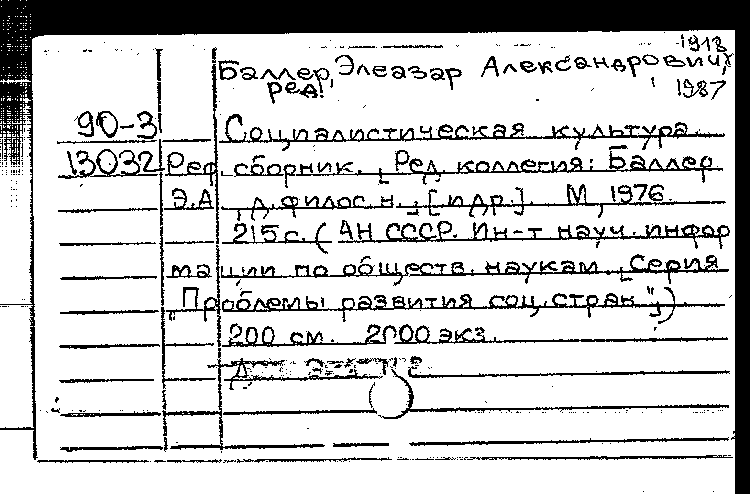 1918
Баллер, Элеазар Александрович,
ред. 1987
90-3 Социалистическая культура.
13032 Реф. сборник. [Ред. коллегия: Баллер
Э.А., д. филос. н., [и др.]. М., 1976.
215 с. (АН СССР. Ин-т науч. инфор
мации по обществ. наукам. [Серия
"Проблемы развития соц. стран"])
200 см. 2000 экз.